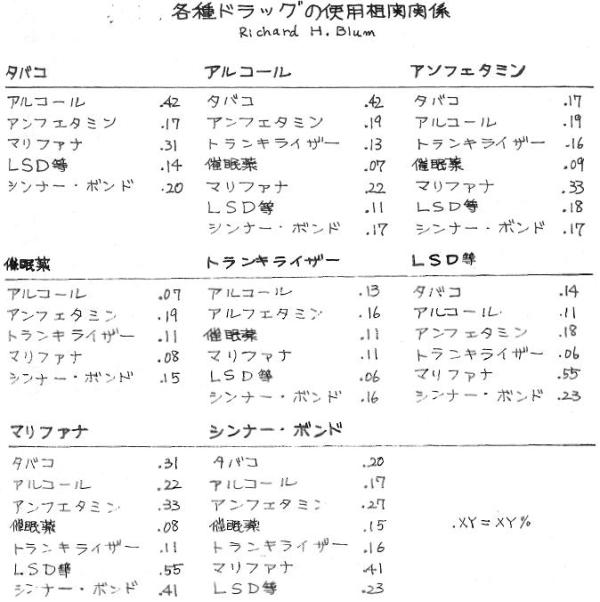 各種ドラッグの使用相関関係
Richard H. Blum
タバコ
アルコール .42
アンフェタミン .17
マリファナ .31
LSD等 .14
シンナー・ボンド .20
アルコール
タバコ .42
アンフェタミン .19
トランキライザー .13
催眠薬 .07
マリファナ .22
LSD等 .11
シンナー・ボンド .17
アンフェタミン
タバコ .17
アルコール .19
トランキライザー .16
催眠薬 .09
マリファナ .33
LSD等 .18
シンナー・ボンド .17
催眠薬
アルコール .07
アンフェタミン .19
トランキライザー .11
マリファナ .08
シンナー・ボンド .15
トランキライザー
アルコール .13
アルフェタミン .16
催眠薬 .11
マリファナ .11
LSD等 .06
シンナー・ボンド .16
LSD等
タバコ .14
アルコール .11
アンフェタミン .18
トランキライザー .06
マリファナ .55
シンナー・ボンド .23
マリファナ
タバコ .31
アルコール .22
アンフェタミン .33
催眠薬 .08
トランキライザー .11
LSD等 .55
シンナー・ボンド .41
シンナー・ボンド
タバコ .20
アルコール .17
アンフェタミン .27
催眠薬 .15
トランキライザー .16
マリファナ .41
LSD等 .23
.XY=XY%